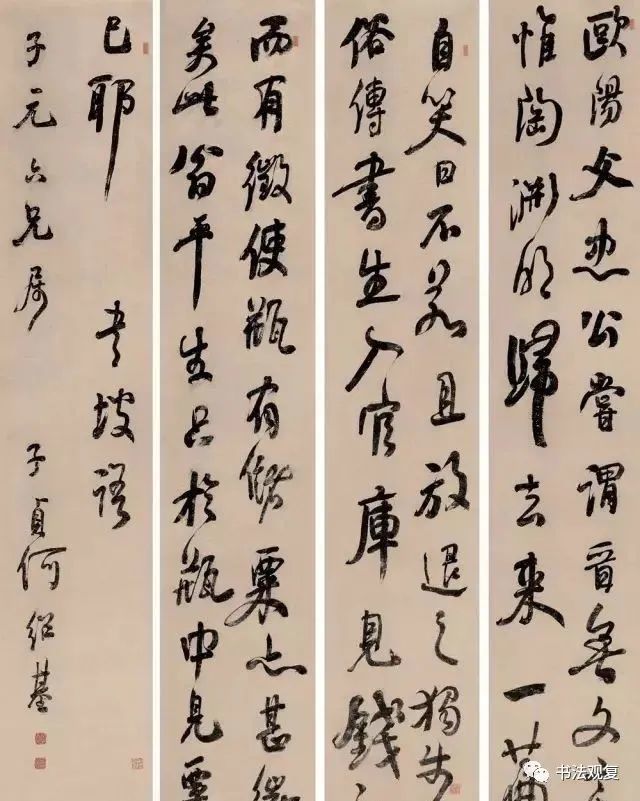 歐陽文忠公嘗謂晉無文
惟陶淵明歸去來一
自笑曰不若且放退之獨步
俗傳書生入官庫見錢
而有徵使瓶有儲粟亦甚微
矣此翁平生只於瓶中見粟
已耶 書坡語
子元六兄屬 子貞何紹基
书法观复